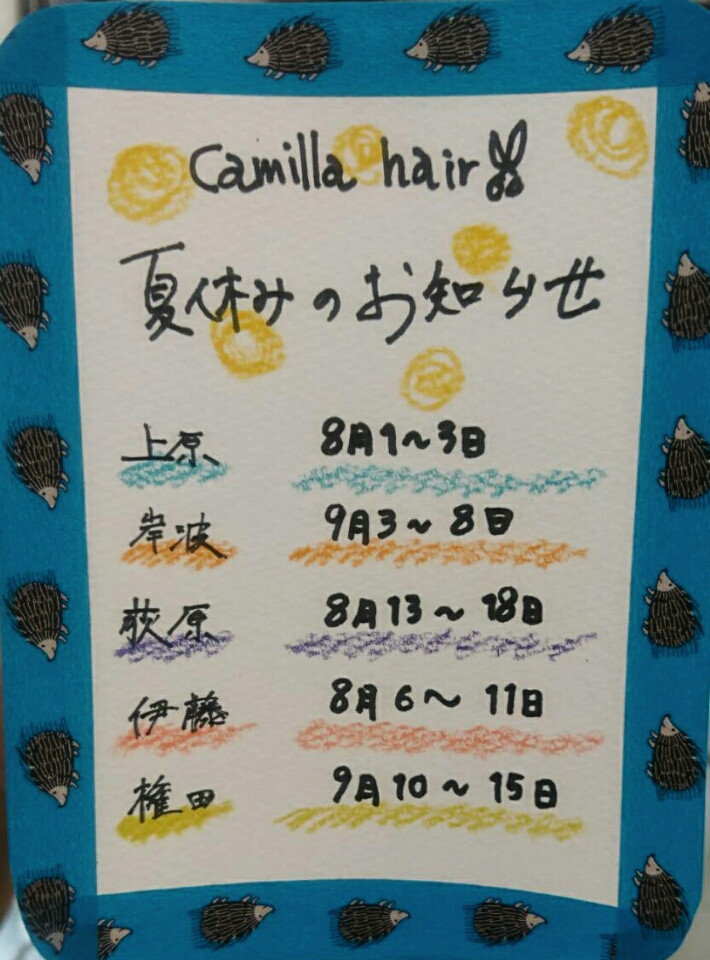 Camilla hair
夏休みのお知らせ
上原 8月1~3日
岸波 9月3~8日
荻原 8月13~18日
伊藤 8月6~11日
権田 9月10~15日